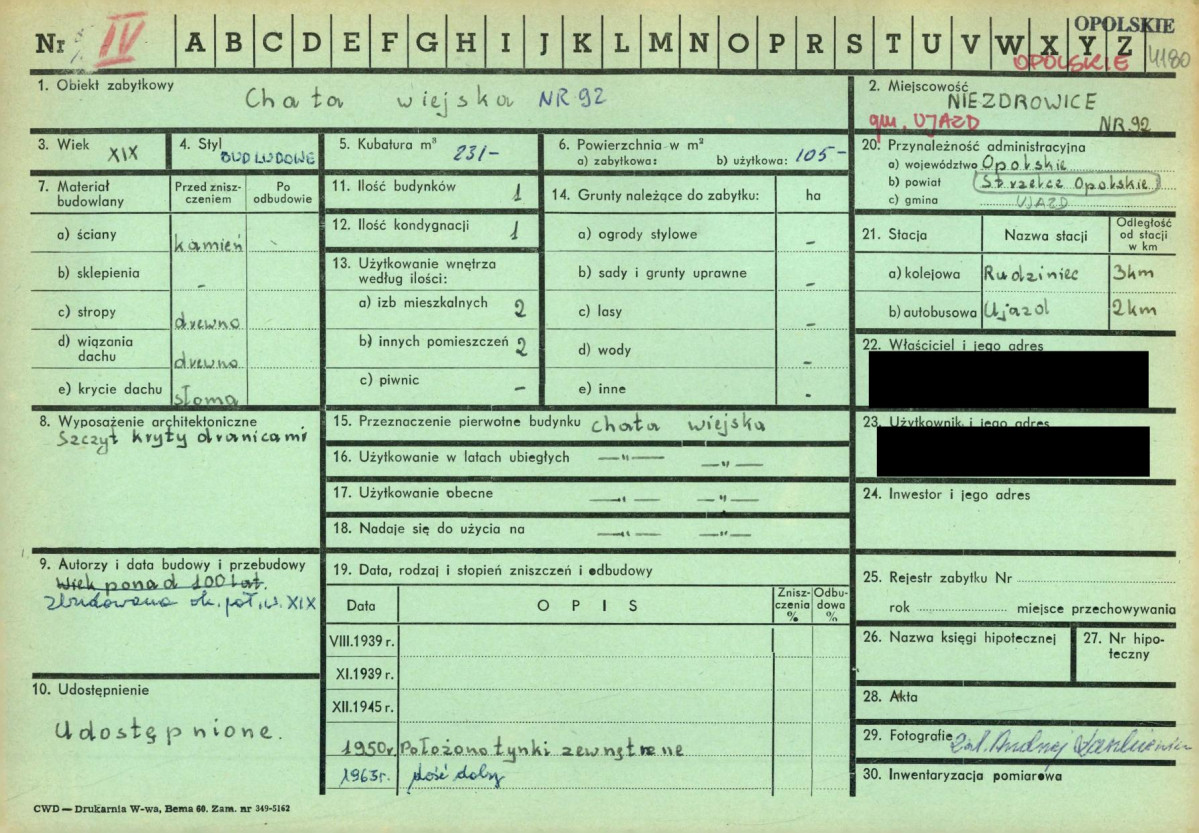 Nr IV A B C D E F G H I J K L M N O P R S T U V W X Y Z OPOLSKIE
OPOLSKIE 4180
1. Obiekt zabytkowy
Chata wiejska NR 92
2. Miejscowość
NIEZDROWICE
gm. UJAZD NR 92
3. Wiek XIX
4. Styl BUD LUDOWE
5. Kubatura m³ 231-
6. Powierzchnia w m²
a) zabytkowa: b) użytkowa: 105-
20. Przynależność administracyjna
a) województwo Opolskie
b) powiat Strzelce Opolskie
c) gmina UJAZD
7. Materiał budowlany
Przed zniszczeniem
Po odbudowie
a) ściany kamień
b) sklepienia -
c) stropy drewno
d) wiązania dachu drewno
e) krycie dachu słoma
11. Ilość budynków 1
12. Ilość kondygnacji 1
13. Użytkowanie wnętrza
według ilości:
a) izb mieszkalnych 2
b) innych pomieszczeń 2
c) piwnic -
14. Grunty należące do zabytku: ha
a) ogrody stylowe -
b) sady i grunty uprawne -
c) lasy -
d) wody -
e) inne -
21. Stacja Nazwa stacji Odległość od stacji w km
a) kolejowa Rudziniec 3km
b) autobusowa Ujazd 2km
22. Właściciel i jego adres
23. Użytkownik i jego adres
24. Inwestor i jego adres
8. Wyposażenie architektoniczne
Szczyt kryty dranicami
15. Przeznaczenie pierwotne budynku chata wiejska
16. Użytkowanie w latach ubiegłych —"— —"—
17. Użytkowanie obecne —"— —"—
18. Nadaje się do użycia na —"— —"—
9. Autorzy i data budowy i przebudowy
Wiek ponad 100 lat.
Zbudowana ok. poł. w. XIX
10. Udostępnienie
Udostępnione.
19. Data, rodzaj i stopień zniszczeń i odbudowy
Data OPIS Zniszczenia % Odbudowa %
VIII.1939 r.
XI.1939 r.
XII.1945 r.
1950r. Położono tynki zewnętrzne
1963r. dość dobry
25. Rejestr zabytku Nr
rok miejsce przechowywania
26. Nazwa księgi hipotecznej
27. Nr hipoteczny
28. Akta
29. Fotografie Zał. Andrzej
30. Inwentaryzacja pomiarowa
CWD — Drukarnia W-wa, Bema 60. Zam. nr 349-5162